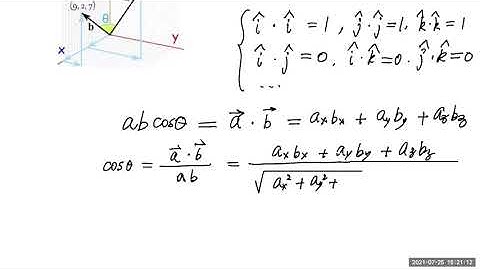 (9, 2, 7)
b
θ
x
y
î · î = 1 , ĵ · ĵ = 1, k̂ · k̂ = 1
î · ĵ = 0 , î · k̂ = 0 . ĵ · k̂ = 0
...
ab cosθ = a⃗ · b⃗ = aₓbₓ + a_y b_y + a_z b_z
cosθ = (a⃗ · b⃗)/(ab) = (aₓbₓ + a_y b_y + a_z b_z)/√(aₓ² + a_y² +
2021-07-25 18:21:12